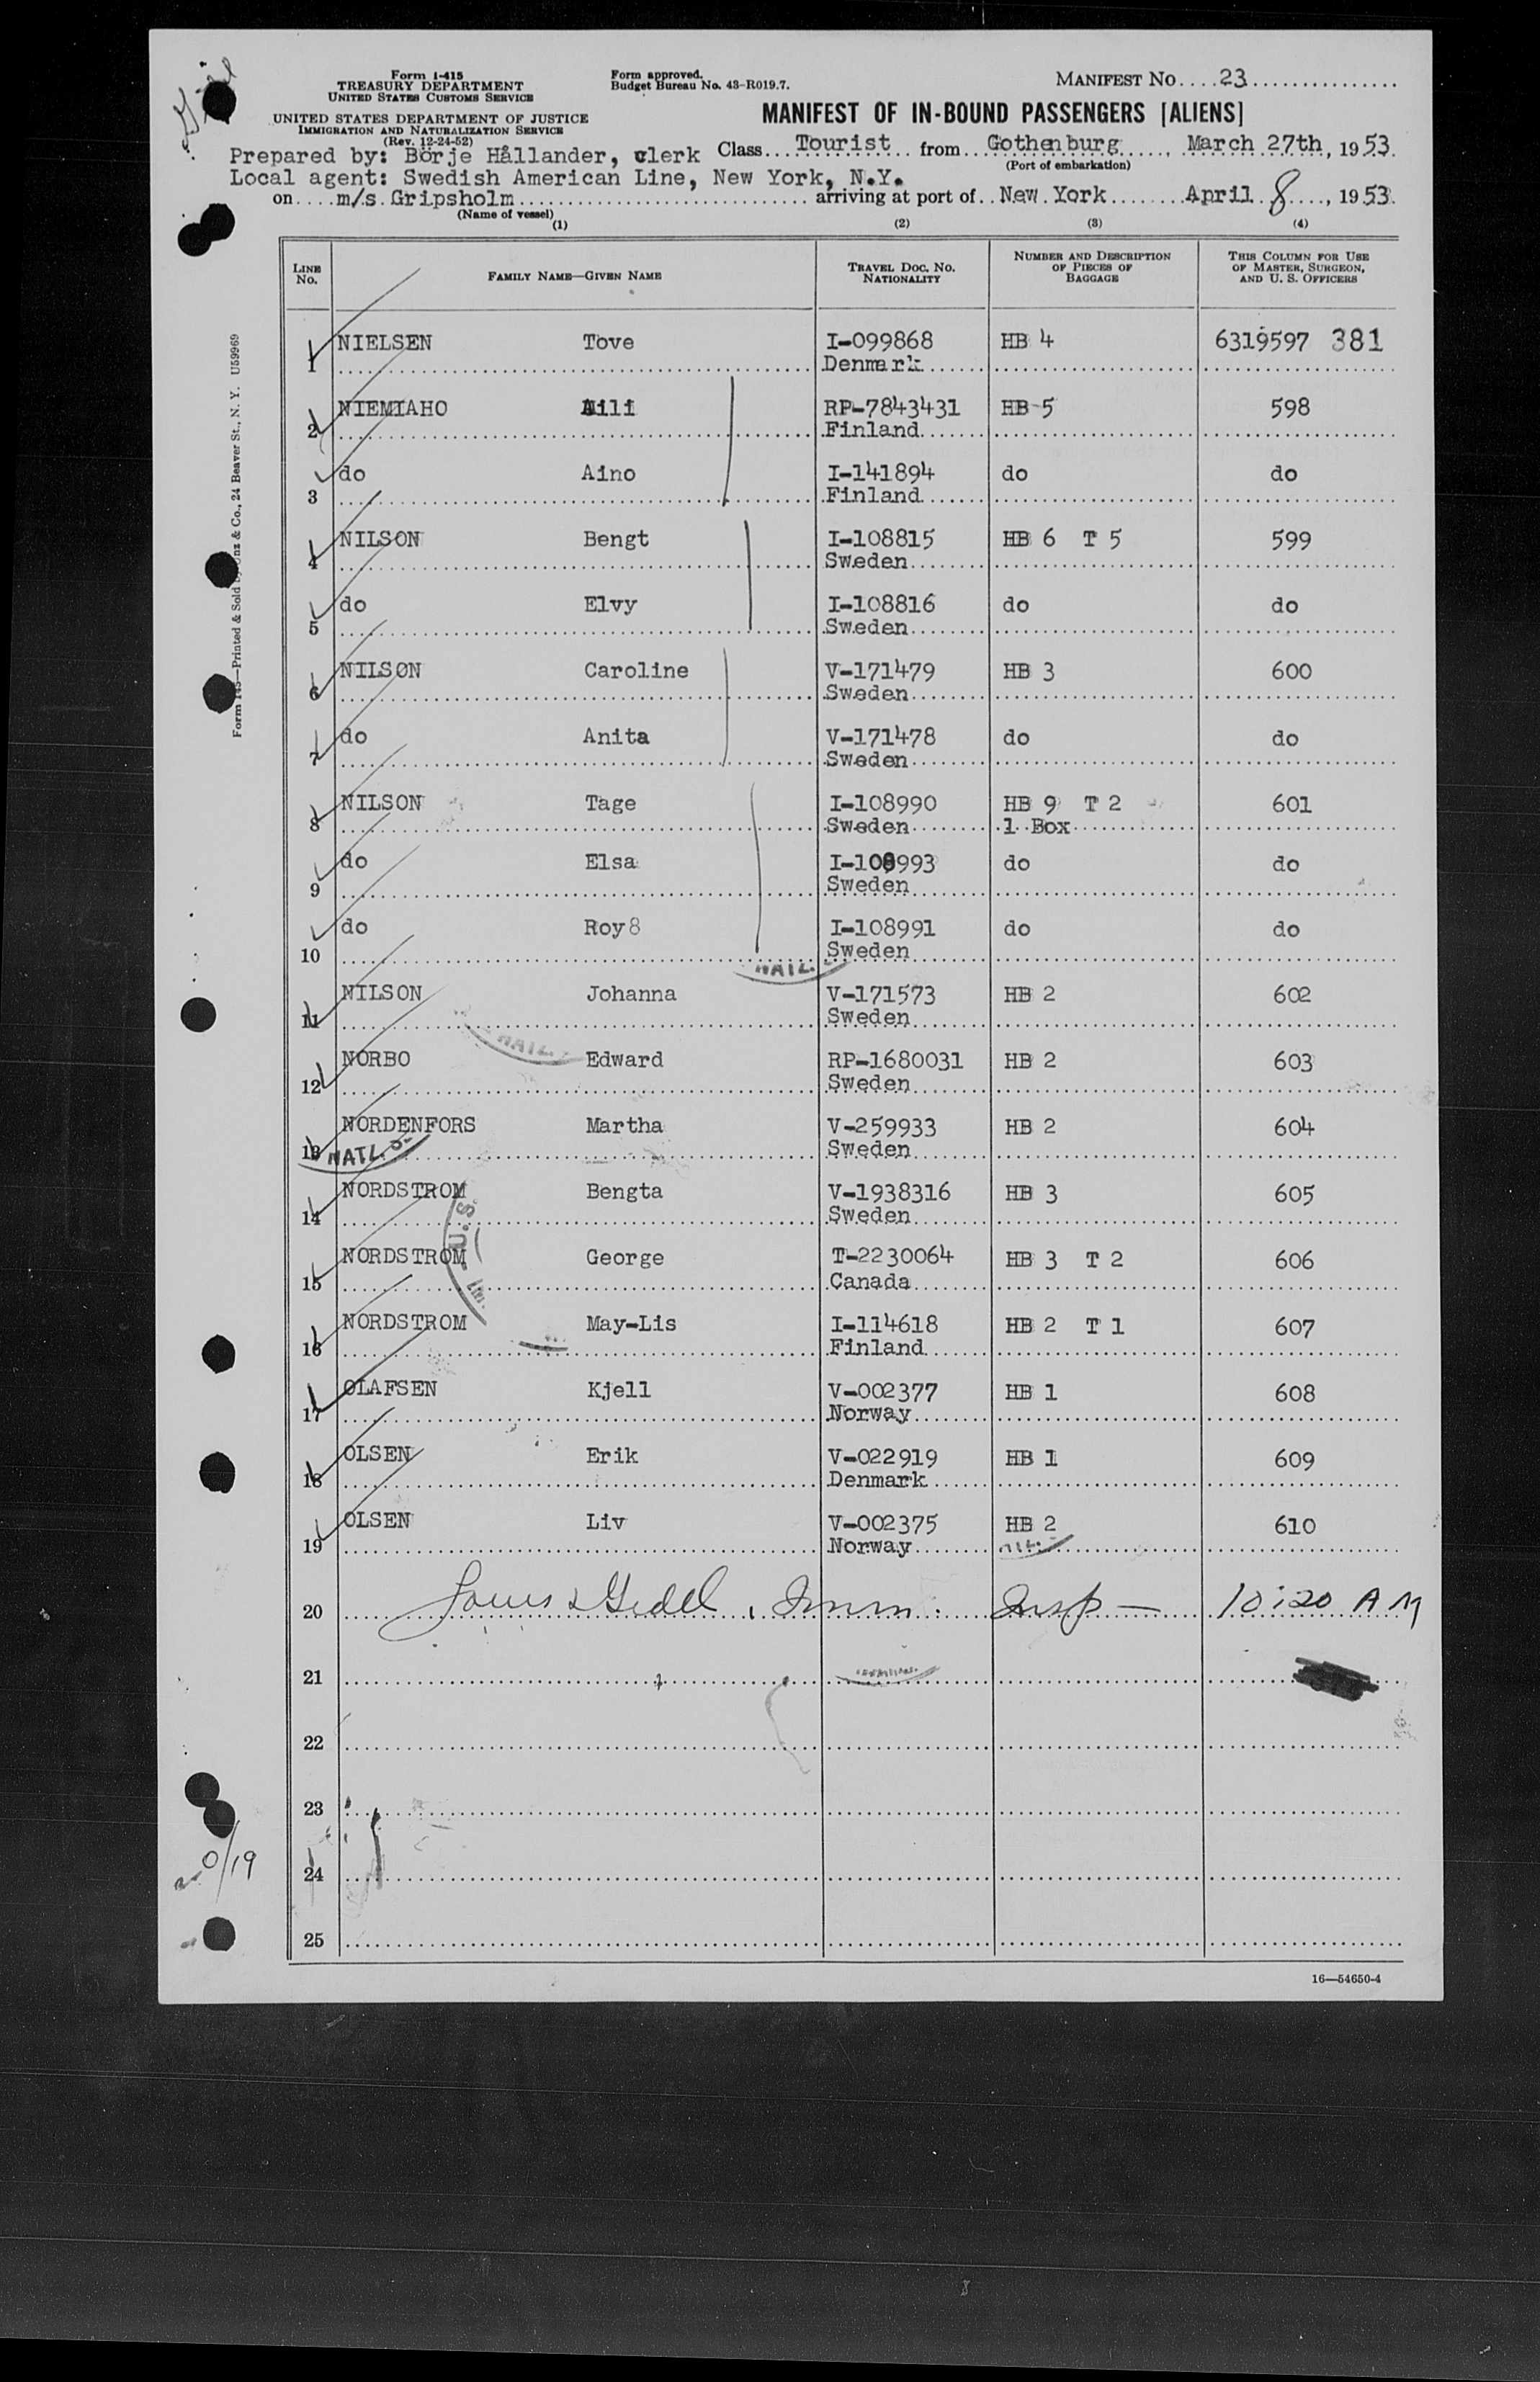 Form I-415
TREASURY DEPARTMENT
UNITED STATES CUSTOMS SERVICE
UNITED STATES DEPARTMENT OF JUSTICE
IMMIGRATION AND NATURALIZATION SERVICE
(Rev. 12-24-52)
Form approved.
Budget Bureau No. 43-R019.7.
MANIFEST NO....23
MANIFEST OF IN-BOUND PASSENGERS [ALIENS]
Prepared by: Börje Hållander, clerk Class Tourist from Gothenburg, March 27th, 1953.
(Port of embarkation)
Local agent: Swedish American Line, New York, N.Y.
on m/s Gripsholm arriving at port of New York April 8, 1953.
(Name of vessel)
(1) (2) (3) (4)
LINE NO. FAMILY NAME—GIVEN NAME TRAVEL DOC. NO. NATIONALITY NUMBER AND DESCRIPTION OF PIECES OF BAGGAGE THIS COLUMN FOR USE OF MASTER, SURGEON, AND U. S. OFFICERS
1 NIELSEN Tove I-099868 HB 4 6319597 381
Denmark
2 NIEMIAHO Aili RP-7843431 HB 5 598
Finland
3 do Aino I-141894 do do
Finland
4 NILSON Bengt I-108815 HB 6 T 5 599
Sweden
5 do Elvy I-108816 do do
Sweden
6 NILSON Caroline V-171479 HB 3 600
Sweden
7 do Anita V-171478 do do
Sweden
8 NILSON Tage I-108990 HB 9 T 2 601
Sweden 1 Box
9 do Elsa I-108993 do do
Sweden
10 do Roy 8 I-108991 do do
Sweden
NATL.
11 NILSON Johanna V-171573 HB 2 602
Sweden
NATL.
12 NORBO Edward RP-1680031 HB 2 603
Sweden
13 NORDENFORS Martha V-259933 HB 2 604
NATL. Sweden
14 NORDSTROM Bengta V-1938316 HB 3 605
Sweden
U.S.
15 NORDSTROM George T-2230064 HB 3 T 2 606
Canada
16 NORDSTROM May-Lis I-114618 HB 2 T 1 607
Finland
17 OLAFSEN Kjell V-002377 HB 1 608
Norway
18 OLSEN Erik V-022919 HB 1 609
Denmark
19 OLSEN Liv V-002375 HB 2 610
Norway
20 Imm. Insp — 10:20 AM
21
22
23
24
25
0/19
16—54650-4
& Co., 24 Beaver St., N. Y. U59969